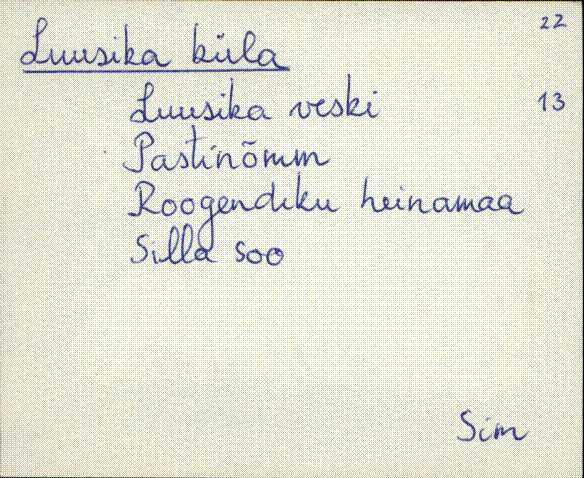 Luusika küla 22
Luusika veski 13
Pastinõmm
Roogendiku heinamaa
Silla soo
Sim